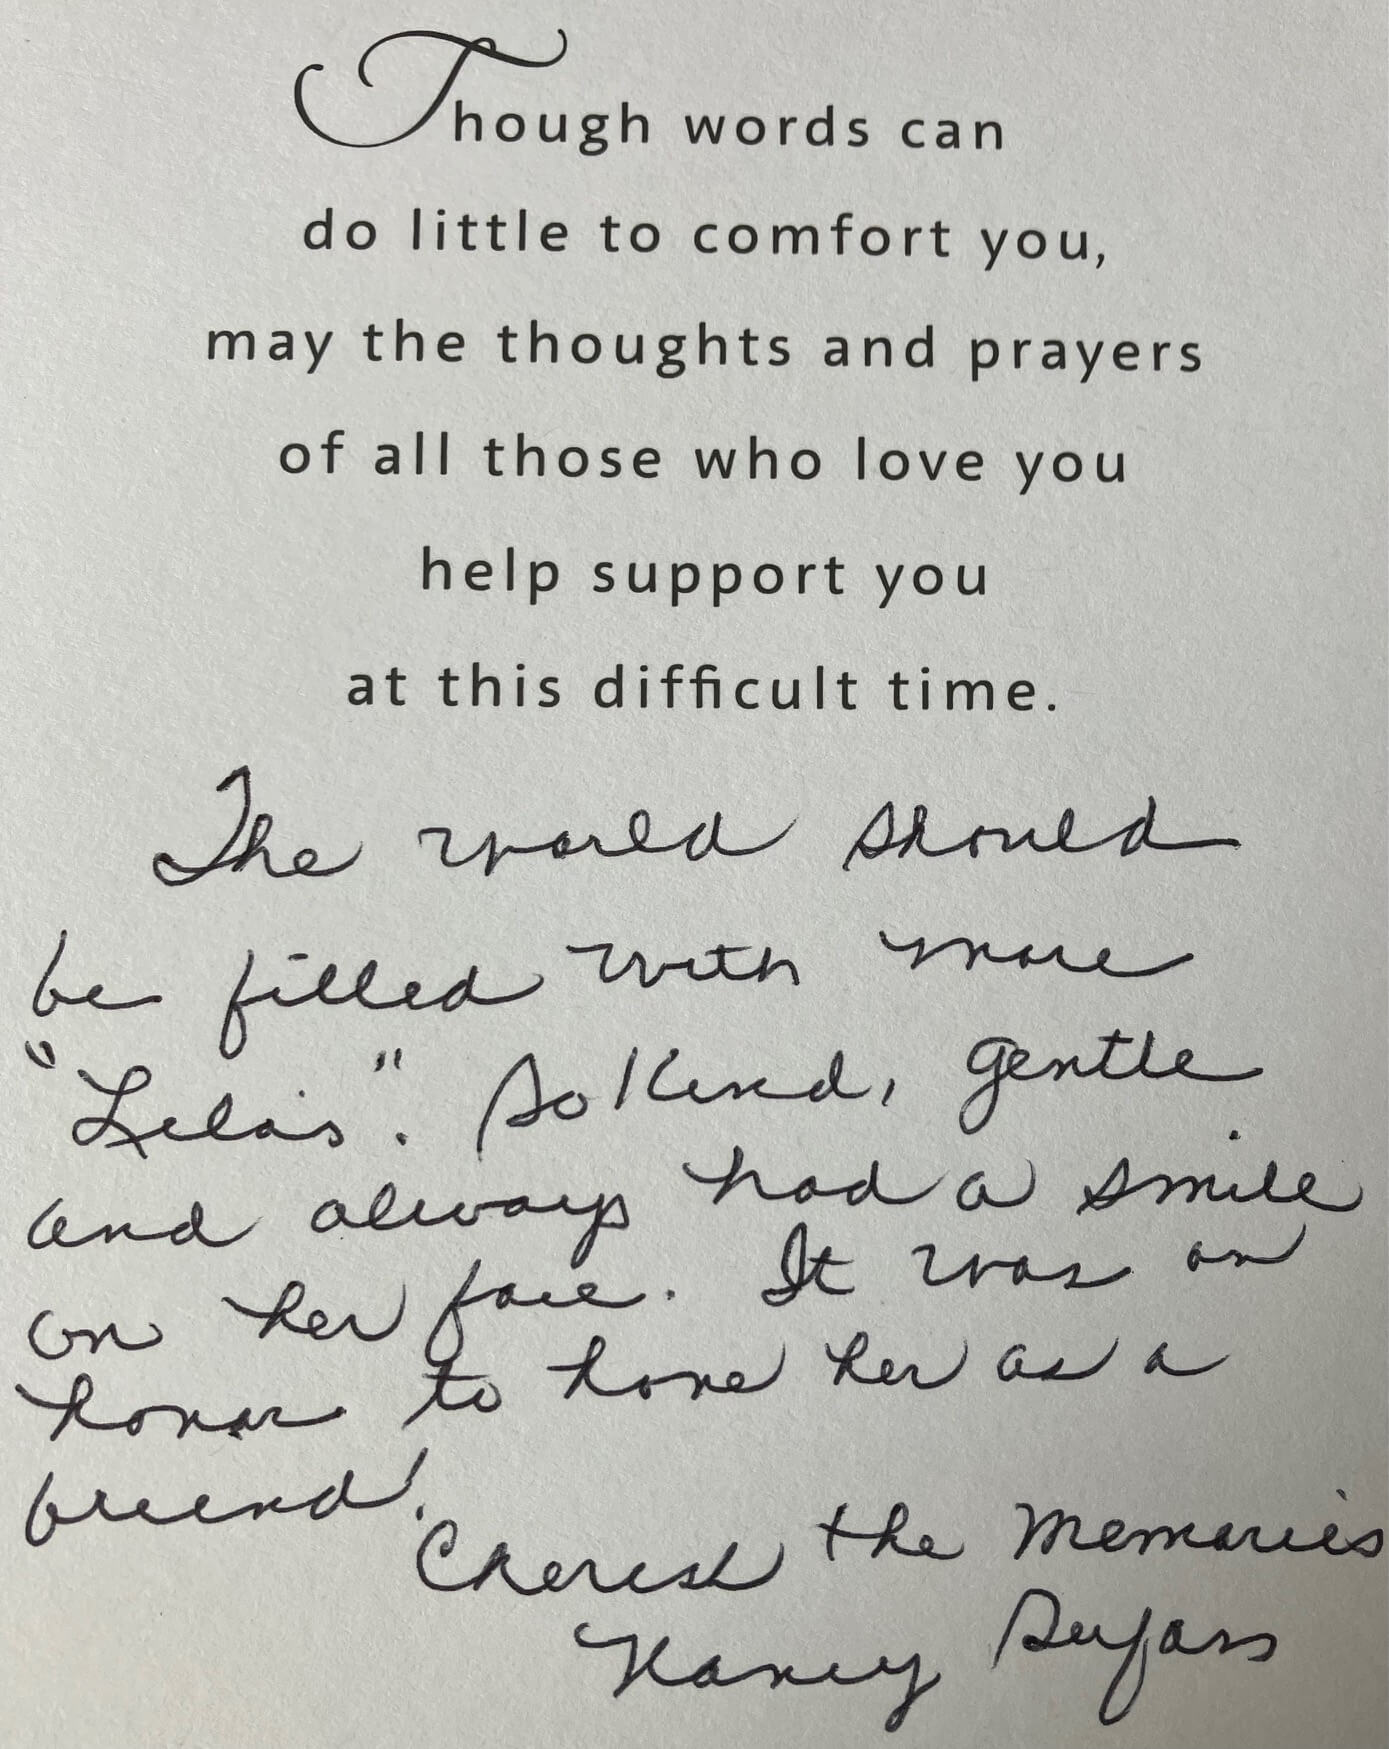 Though words can
do little to comfort you,
may the thoughts and prayers
of all those who love you
help support you
at this difficult time.
The world should
be filled with more
"Lela's". So Kind, gentle
and always had a smile
on her face. It was an
honor to have her as a
friend!
Cherish the Memories
Nancy